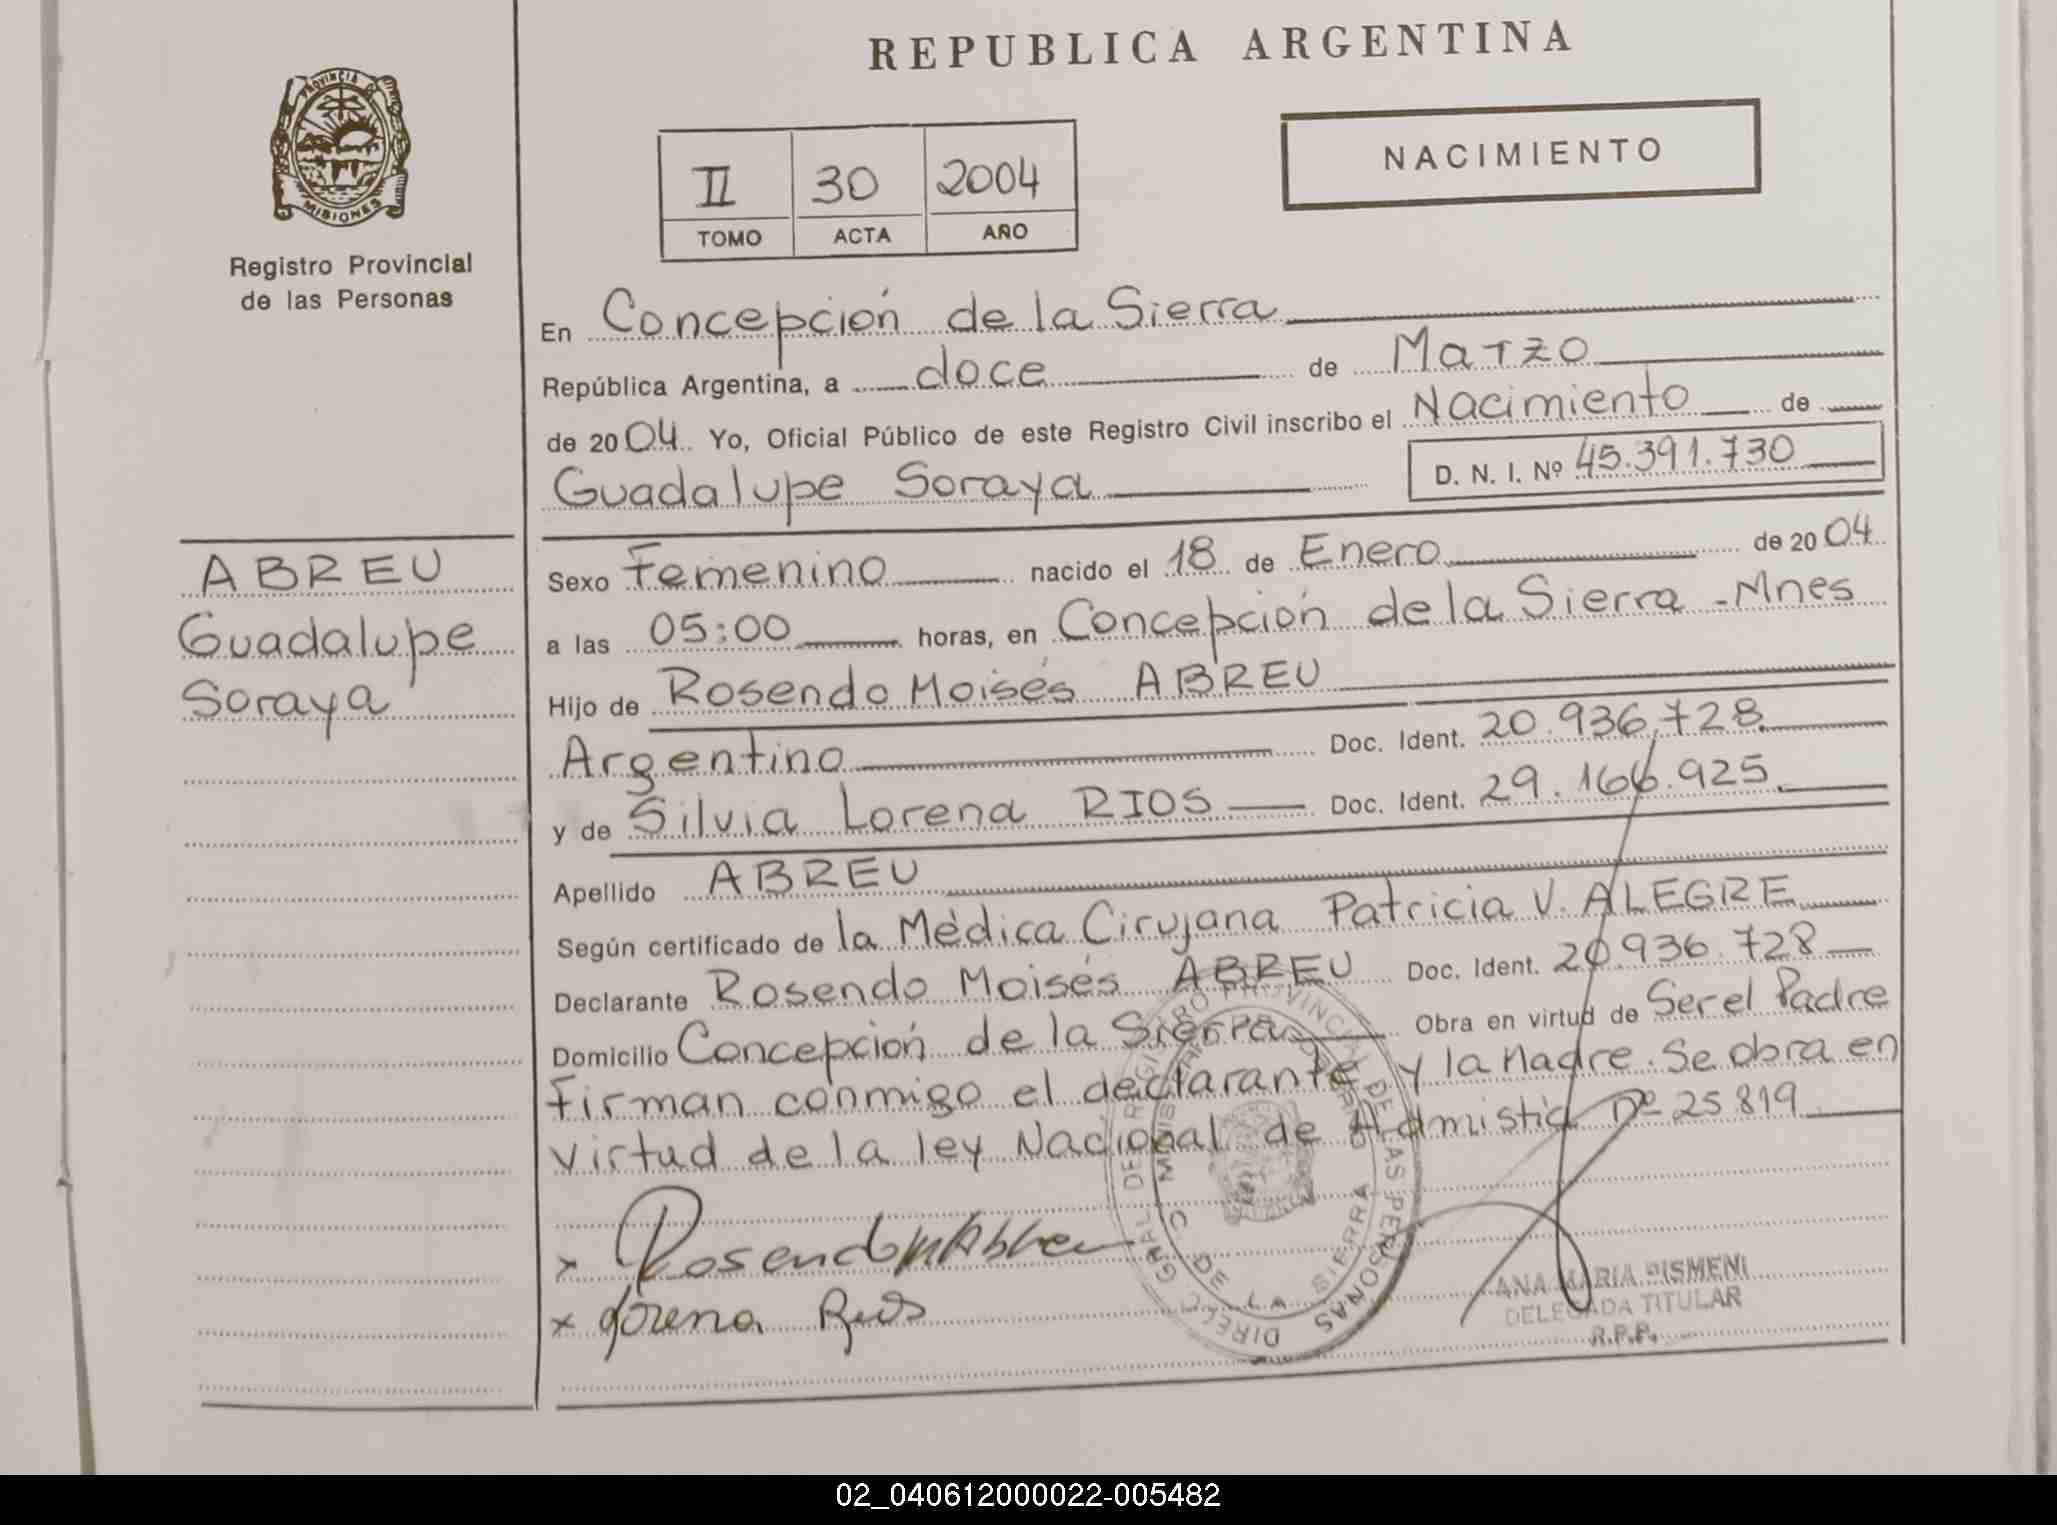 REPUBLICA ARGENTINA
PROVINCIA DE MISIONES
Registro Provincial
de las Personas
II 30 2004
TOMO ACTA AÑO
NACIMIENTO
En Concepción de la Sierra
República Argentina, a doce de Marzo
de 2004 Yo, Oficial Público de este Registro Civil inscribo el Nacimiento de
Guadalupe Soraya D. N. I. Nº 45.391.730
ABREU
Guadalupe
Soraya
Sexo Femenino nacido el 18 de Enero de 2004
a las 05:00 horas, en Concepción de la Sierra - Mnes
Hijo de Rosendo Moisés ABREU
Argentino Doc. Ident. 20.936.728
y de Silvia Lorena RIOS Doc. Ident. 29.166.925
Apellido ABREU
Según certificado de la Médica Cirujana Patricia V. ALEGRE
Declarante Rosendo Moisés ABREU Doc. Ident. 20.936.728
Domicilio Concepción de la Sierra Obra en virtud de Ser el Padre
Firman conmigo el declarante y la Madre. Se obra en
virtud de la ley Nacional de Admistía Nº 25819
x Rosendo M Abreu
x Lorena Rios
DIREC. GRAL DE REGISTRO PROVINCIAL DE LAS PERSONAS
C. DE LA SIERRA
ANA MARIA PISMENI
DELEGADA TITULAR
R.P.P.
02_040612000022-005482